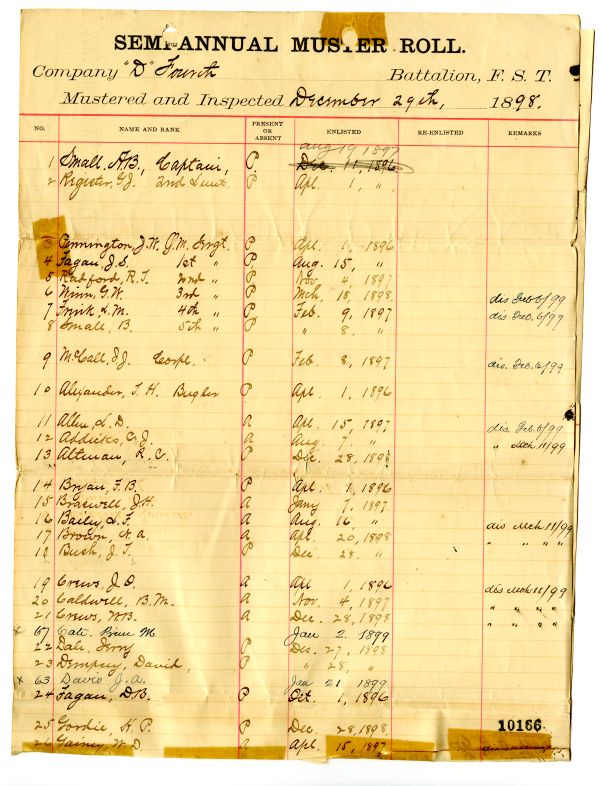 SEMI-ANNUAL MUSTER ROLL.
Company "D" Fourth Battalion, F. S. T.
Mustered and Inspected December 29th, 1898.
NO. NAME AND RANK PRESENT OR ABSENT ENLISTED RE-ENLISTED REMARKS
Aug 19 1897
1 Small, A.B., Captain, P. Dec. 11, 1896
2 Register, G.J. 2nd Lieut. P Apl. 1, "
3 Pennington, J.W. Q.M. Sergt. P Apl. 1, 1896
4 Fagan, J.S. 1st " P. Aug. 15, "
5 Radford, R.T. 2nd " P Nov. 4, 1897
6 Ninn, G.W. 3rd " P Mch. 18, 1898. dis Feb 6/99
7 Frink, L.M. 4th " P Feb. 9, 1897 dis. Feb. 6/99
8 Small, B. 5th " P " 8, "
9 McCall, J.J. Corpl. P Feb. 8, 1897 dis. Feb. 6/99
10 Alexander, T.H. Bugler P Apl. 1, 1896
11 Allen, L.D. A Apl. 15, 1897 dis. Feb. 6/99
12 Addicks, C.J. A Aug. 7, " " Mch. 11/99
13 Altman, R.C. P Dec. 28, 1898
14 Bryan, F.B. P Apl. 1, 1896
15 Braswell, J.H. A Jany 7, 1897
16 Bailey, L.F. A Aug. 16, " dis Mch 11/99
17 Brown, N.A. A Apl. 20, 1898 " " " "
18 Bush, J.T. P Dec. 28, "
19 Crews, J.D. A Apl 1, 1896 dis Mch 11/99
20 Caldwell, B.M. A Nov. 4, 1897 " " " "
21 Crews, W.B. A Dec. 28, 1898 " " " "
x 67 Cato M. Jan 2. 1899
22 Dale, P Dec. 27, 1898
23 Dempsey, David, P " 28, "
x 63 Davis J.A. Jan 21 1899
24 Fagan, D.B. P Oct. 1, 1896
25 Gordie, H.P. P Dec. 28, 1898
10166
26 Gainey, W.D. A Apl. 15, 1897